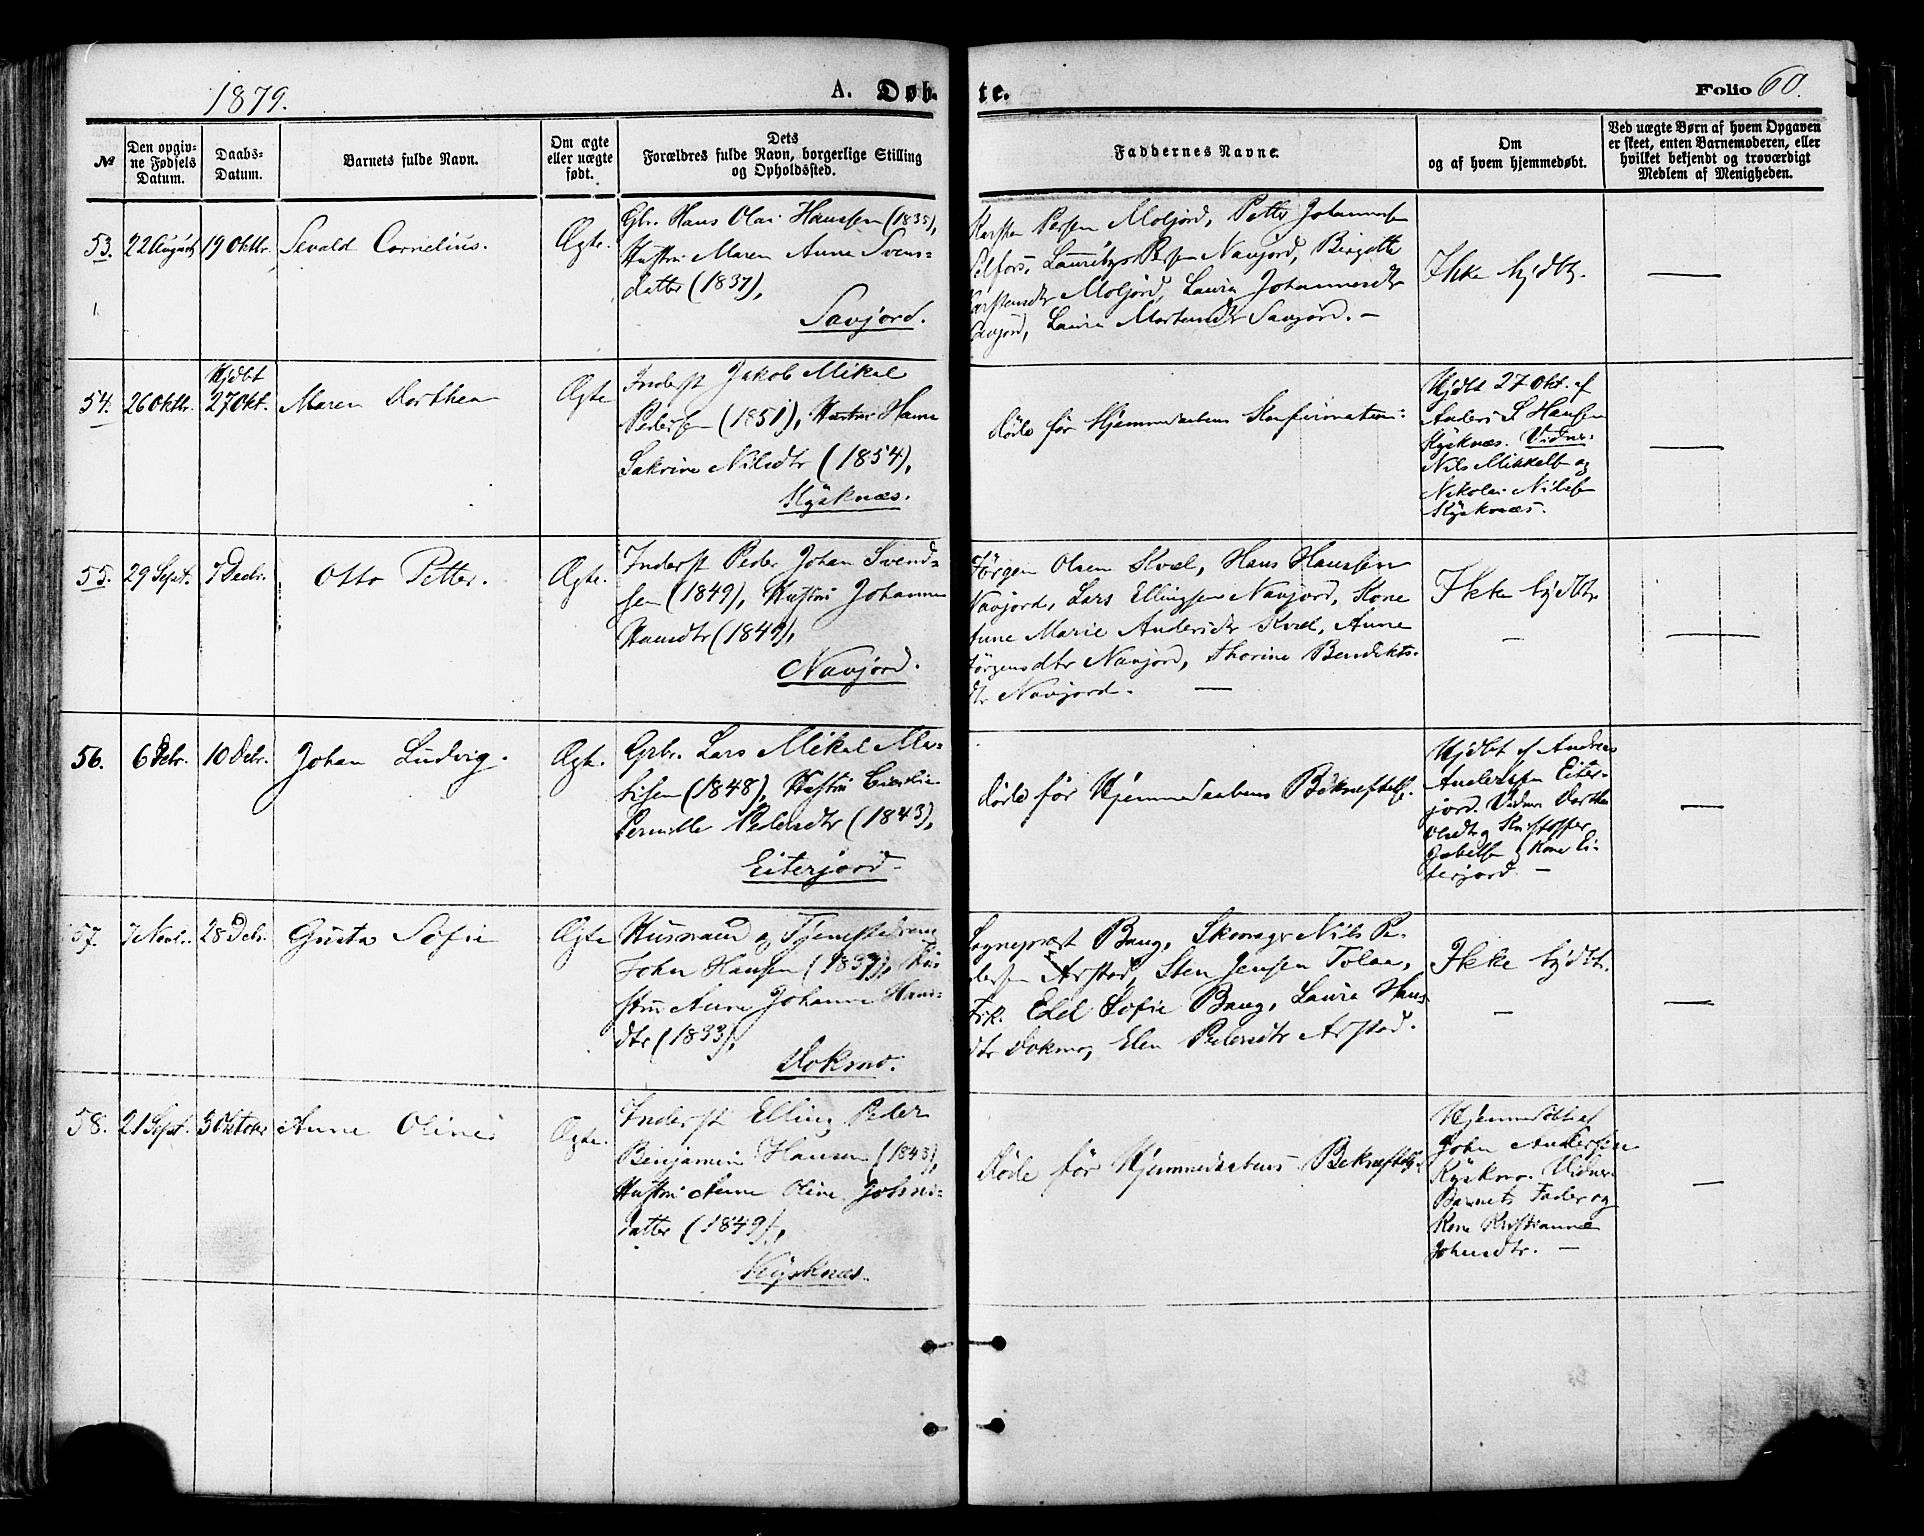 1879.
A. Døb-
te.
Folio 60.
№
Den opgiv-
ne Fødsels
Datum.
Daabs-
Datum.
Barnets fulde Navn.
Om ægte
eller uægte
født.
Dets
Forældres fulde Navn, borgerlige Stilling
og Opholdssted.
Faddernes Navne.
Om
og af hvem hjemmedøbt.
Ved uægte Børn af hvem Opgaven
er skeet, enten Barnemoderen, eller
hvilket bekjendt og troværdigt
Medlem af Menigheden.
53.
22 August
19 Oktbr.
Sevald Cornelius.
Ægte.
Gbr. Hans Olai Hanssen (1835),
Hustru Maren Anne Svens-
datter (1837),
Savjord.
Karsten Persen Moljord, Petter Johannesen
Selfors, Lauritz Persen Navjord, Birgitte
Karstensdtr Moljord, Laura Johannesdtr
Savjord, Laura Mortensdtr Savjord. —
Ikke hjdbt.
54.
26 Oktbr.
Hjdbt
27 Okt.
Maren Dorthea
Ægte
Inderst Jakob Mikal
Pedersen (1851), Hustru Hanna
Sakrine Nilsdtr (1854),
Kysknæs.
Døde før Hjemmedaabens Konfirmation.
Hjdbt 27 Okt. af
Anders S Hansen
Kysknæs. Vidner
Nils Mikkels og
Nikolai Nilsen
Kysknæs.
55.
29 Sept.
7 Decbr.
Otto Petter.
Ægte.
Inderst Peder Johan Svend-
sen (1849), Hustru Johanna
Hansdtr (1849),
Navjord.
Jørgen Olsen Kvæl, Hans Hanssen
Navjord, Lars Ellingsen Navjord, Kone
Anne Marie Andersdtr Kvæl, Anne
Jørgensdtr Navjord, Thorine Bendikts-
dtr Navjord. —
Ikke hjdbt
—
56.
6 Debr.
10 Debr.
Johan Ludvig.
Ægte.
Grbr. Lars Mikal Ma-
tisen (1848), Hustru Cecilie
Pernille Pedersdtr (1843),
Eiterjord.
Døde før Hjemmedaabens Bekræftelse.
Hjdbt af Andreas
Andersen Eiter-
jord. Vidner Dorthea
Olsdtr og Kristoffer
og Kone Ei-
terjord. —
57.
7 Novbr.
28 Debr.
Gusta Sofie
Ægte
Husmand og Tjenestedreng
John Hansen (1837), Hu-
stru Anne Johanna Hans-
dtr (1833),
Dokmo.
Sogneprest Bang, Skomager Nils Pe-
dersen Arstad, Sten Jensen Tolaa,
Frk. Edel Sofie Bang, Laura Hans-
dtr Dokmo, Elen Pedersdtr Arstad.
Ikke hjdbt.
—
58.
21 Sept.
3 Oktober
Anne Oline
Ægte.
Inderst Elling Peder
Benjamin Hansen (1843),
Hustru Anne Oline Johns-
datter (1849),
Kysknæs.
Døde før Hjemmedaabens Bekræftelse.
Hjemmedøbt af
John Andersen
Kyskmo. Vidner
Barnets Fader og
Kone Kristianna
Johnsdtr. —